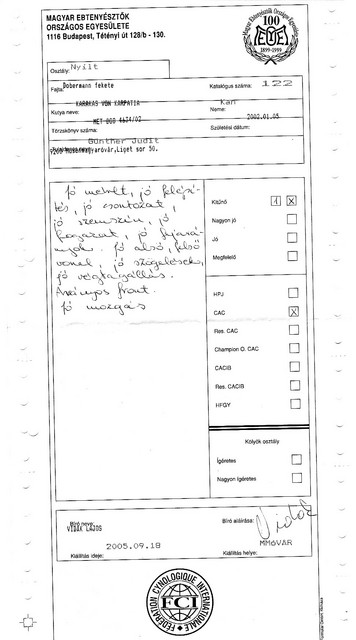 MAGYAR EBTENYÉSZTŐK
ORSZÁGOS EGYESÜLETE
1116 Budapest, Tétényi út 128/b - 130.
Magyar Ebtenyésztők Országos Egyesülete
100
MEOE
1899-1999
Osztály: Nyílt
Fajta: Dobermann fekete
Katalógus száma: 122
KARRKAS VON KARPATIA
Kan
Kutya neve:
Neme:
MET DOB 4634/02
2002.01.05
Törzskönyv száma:
Születési dátum:
Günther Judit
Liget sor 50.
Jó méret, jó felépí-
tés, jó csontozat,
jó szemszín, jó
fogazat, jó fejará-
nyok. Jó alsó, felső
vonal, jó szögelések,
jó végtagállás.
Arányos front.
Jó mozgás
Kitűnő 1 X
Nagyon jó
Jó
Megfelelő
HPJ
CAC X
Res. CAC
Champion O. CAC
CACIB
Res. CACIB
HFGY
Kölyök osztály
Ígéretes
Nagyon ígéretes
Bíró neve:
VIDÁK LAJOS
Bíró aláírása:
2005.09.18
MMÓVÁR
Kiállítás ideje:
Kiállítás helye:
FEDERATION CYNOLOGIQUE INTERNATIONALE
FCI